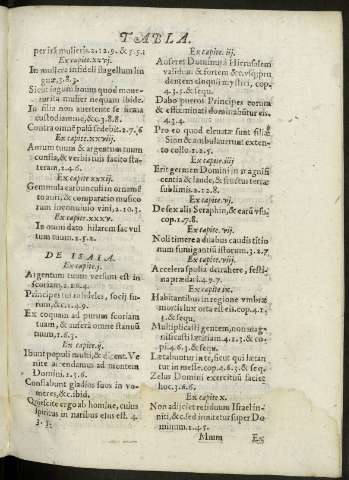 TABLA.
per irā mulieris. 2. 12. 9. & 7. 5. 1
Ex capite. xxvj.
In muliere infideli flagellum lin
gue. 3. 8. 3.
Sicut iugum boum quod moue-
tur ita mulier nequam ibide.
In filia non auertente se firma
custodiam me, &c. 3. 8. 8.
Contra omnē palū sedebit. 2. 7. 6
Ex capite. xxviij.
Aurum tuum & argentum tuum
confla, & verbis tuis facito sta-
teram, 2. 4. 6.
Ex capite. xxxij.
Gemmula carounculi in ornamē
to auri, & comparatio musico
rum in conuiuio vini, 2. 10. 3.
Ex capite. xxxv.
In omni dato hilarem fac vul
tum tuum. 2. 5. 2.
DE ISAIA.
Ex capite. j.
Argentum tuum versum est in
scoriam, 2. 10. 4.
Principes tui infideles, socij fu-
rum, &c. 1. 4. 9.
Ex coquam ad purum scoriam
tuam, & auferā omne stannū
tuum, 1. 6. 3.
Ex capite. ij.
Ibunt populi multi, & dicent. Ve
nite ascendamus ad montem
Domini. 2. 3. 6.
Conflabunt gladios suos in vo-
meres, &c. ibid.
Quiescite ergo ab homine, cuius
spiritus in naribus eius est. 4.
3. 3.
Ex capite. iij.
Auferet Dominus á Hierusalem
validum & fortem & c. vsq; pru
dentem eloquij mystici, cap.
4. 3. 5. & seq.
Dabo pueros Principes eorum
& effeminati dominabūtur eis.
4. 3. 4.
Pro eo quod eleuatæ sunt filiæ
Sion & ambulauerunt exten-
to collo. 2. 5.
Ex capite. iiij
Erit germen Domini in magnifi
centia & laude, & fructus terræ
sublimis. 2. 12. 8.
Ex capite. vj.
De sex alis Seraphin, & earū vsu.
cap. 1. 7. 8.
Ex capite. vij.
Noli timere a duabus caudis titio
num fumigantiū istorum, 3. 2. 7.
Ex capite. viij.
Accelera spolia detrahere, festi-
na prædari. 4. 9. 7.
Ex capite ix.
Habitantibus in regione vmbræ
mortis lux orta est eis. cop. 4. 2.
3. & sequ.
Multiplicasti gentem, non mag-
nificasti lætitiam. 4. 1. 3. & co-
pi. 4. 6. 3. & seq.
Lætabuntur in te, sicut qui lætan
tur in messe. cop. 4. 6. 3. & seq.
Zelus Domini exercituū faciet
hoc. 3. 6. 6.
Ex capite x.
Non adijciet residuum Israel in-
niti, &c. sed innitetur super Do
minum. 1. 4. 5.
Mmm Ex